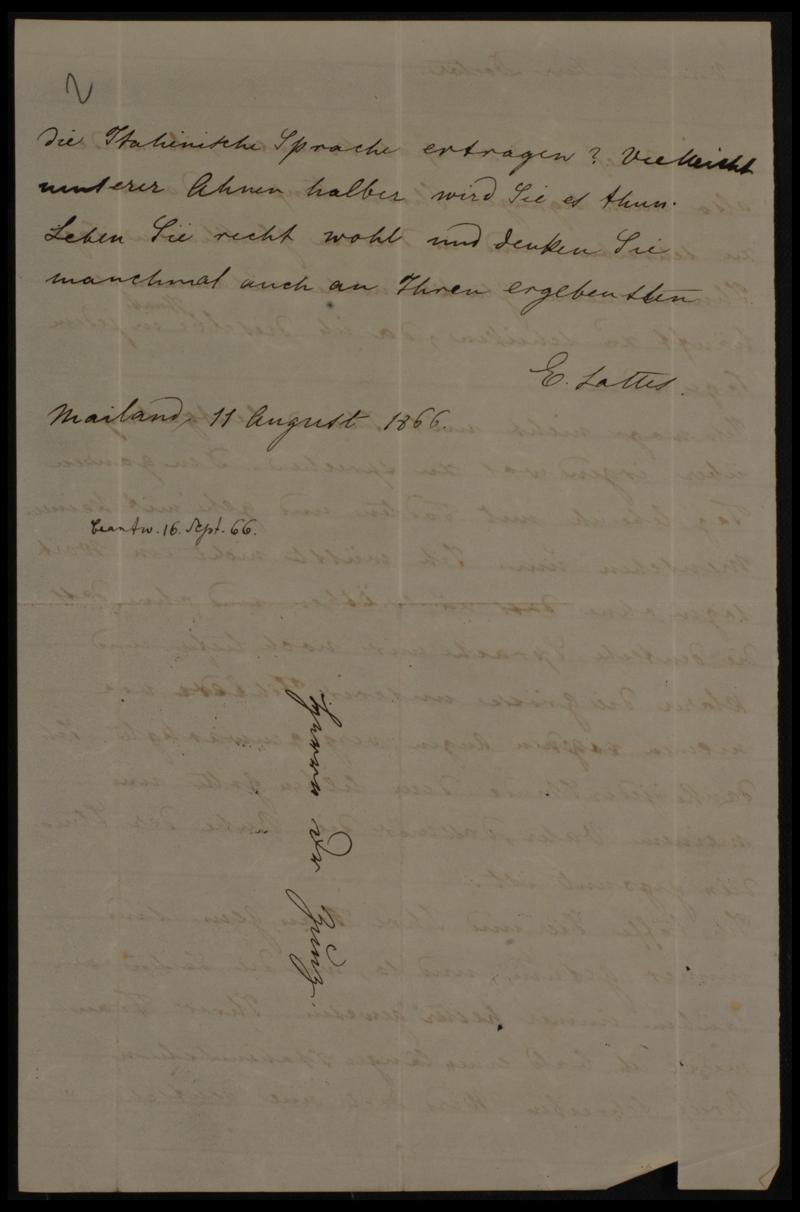 2
die Italienische Sprache ertragen? Vielleicht
unserer Ahnen halber wird Sie es thun.
Leben Sie recht wohl und denken Sie
manchmal auch an Ihren ergebensten
E. Lattes.
Mailand, 11 August 1866.
beantw. 16. Sept. 66.
Herrn Dr Zunz.